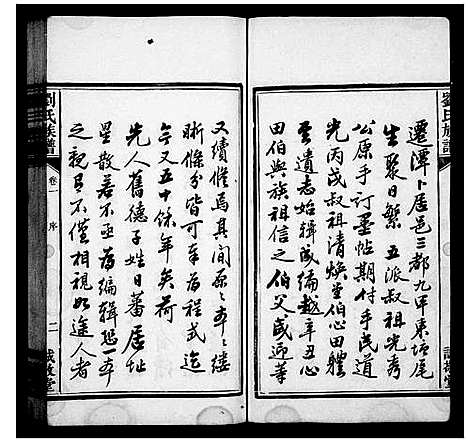 劉氏族譜
遷潭卜居邑三都九甲東塘尾
生聚日繁五派叔祖光秀
公原手訂墨帖期付手民道
光丙戌叔祖清煥堂伯心田體
雲遺志始輯成編越辛丑心
田伯與族祖信之伯父咸迎等
又續修焉其間原原本本縷
晰條分皆可奉為程式迄
今又五十餘年矣荷
先人舊德子姓日蕃居址
星散若不亟為編輯延一本
之親且不僅相視如途人者
劉氏族譜
卷一
序
二
敬堂